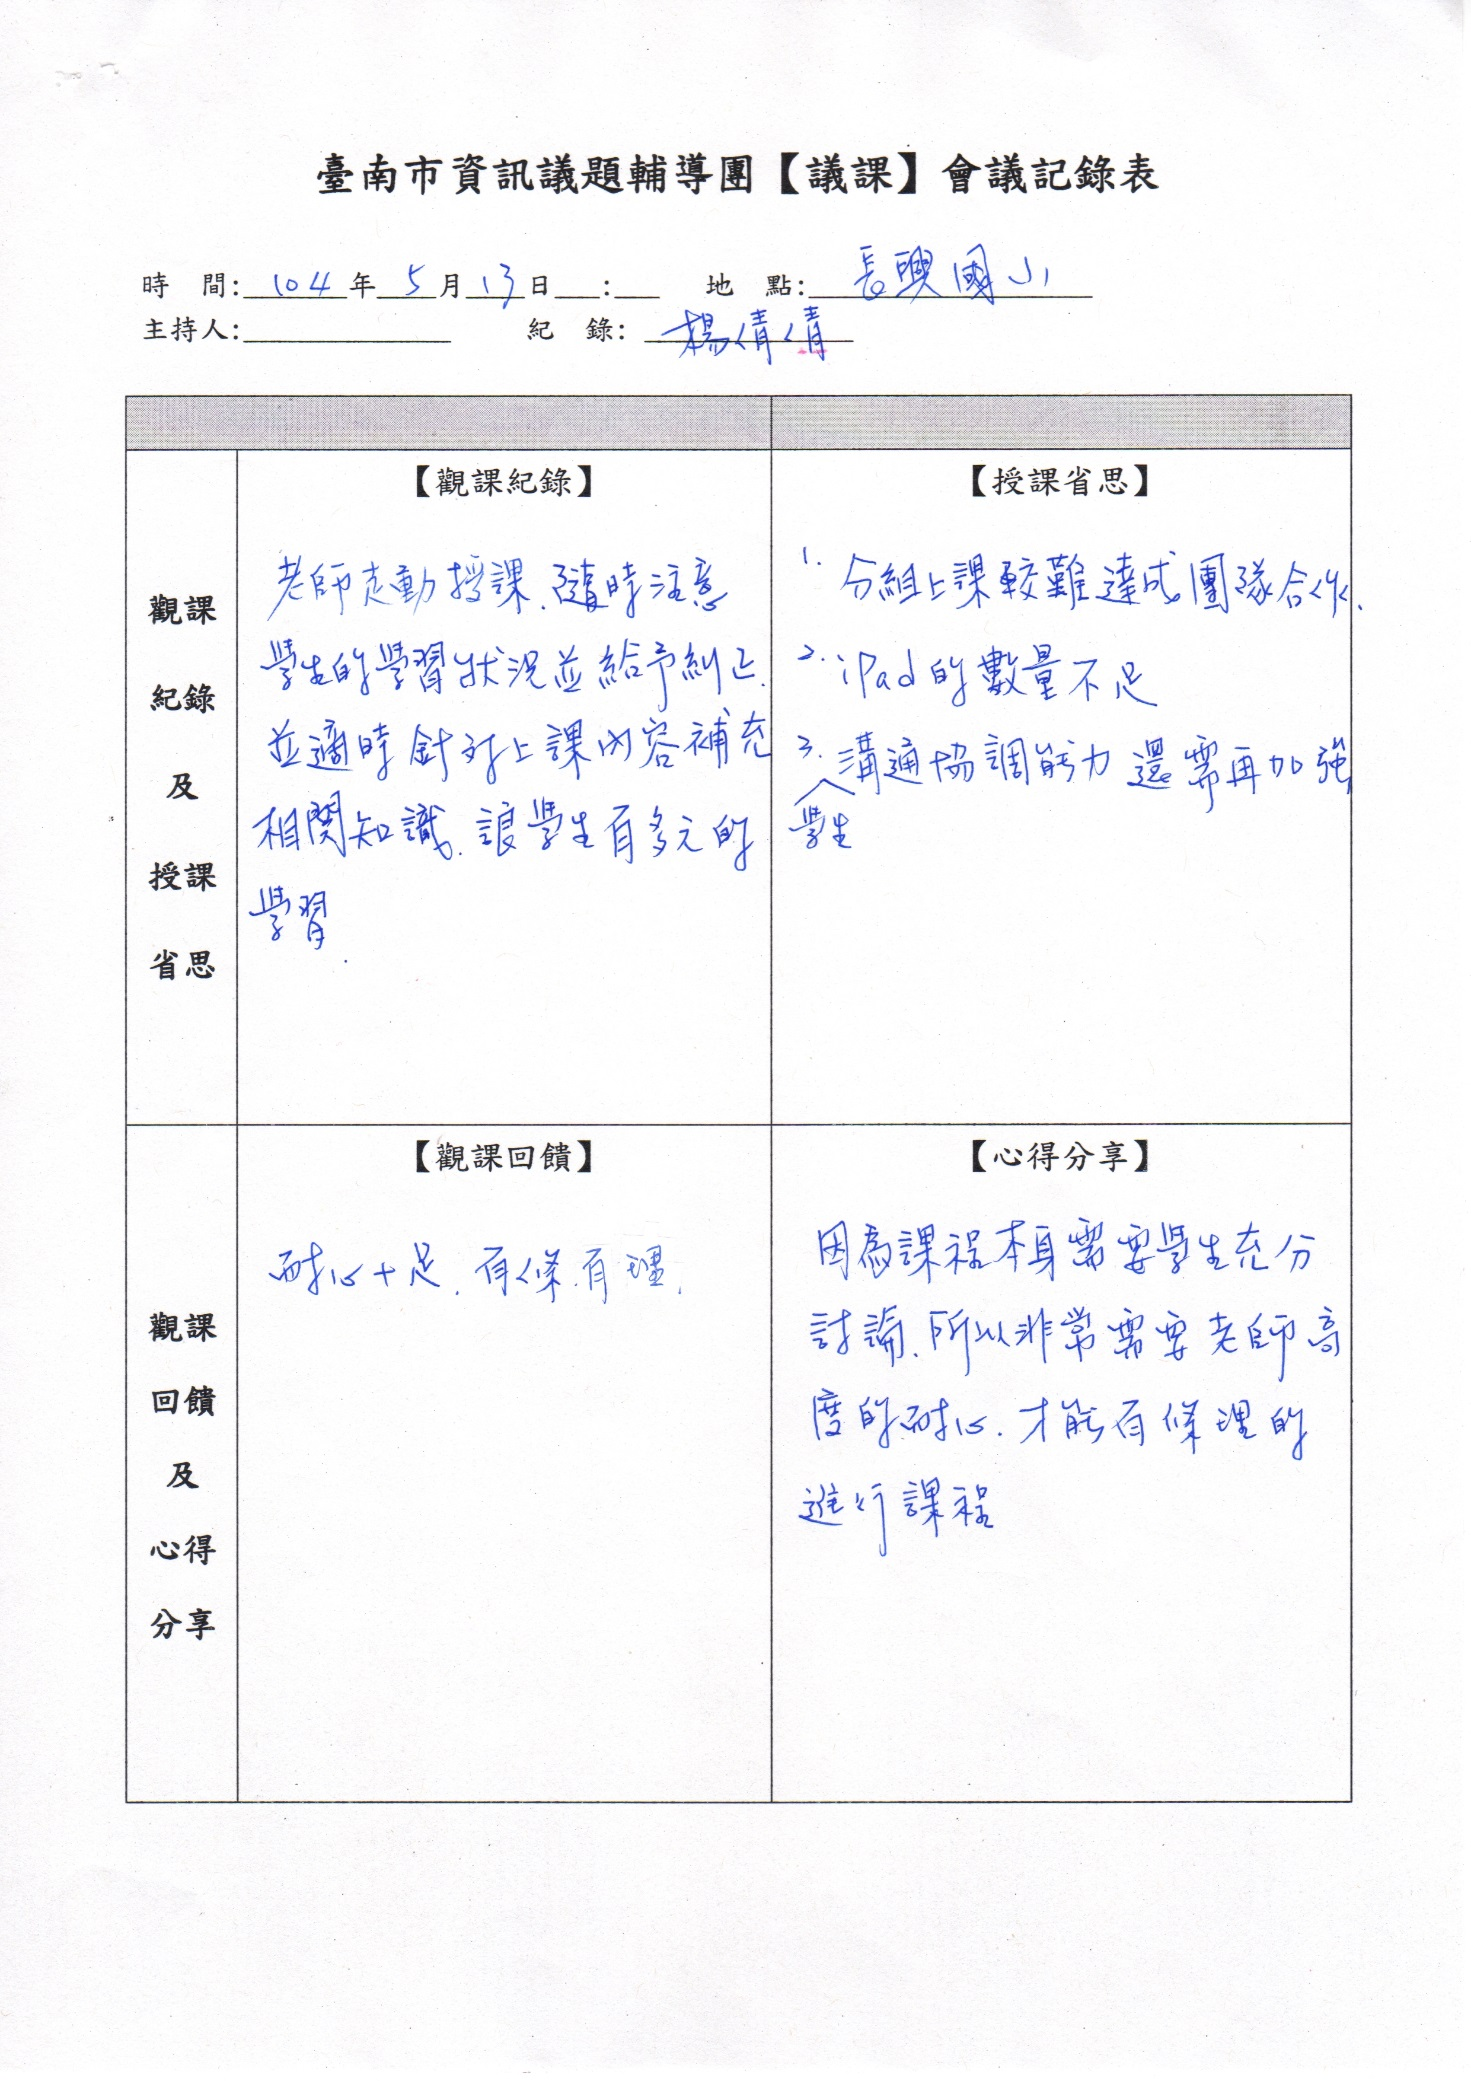 臺南市資訊議題輔導團【議課】會議記錄表
時 間:104年5月13日 : 地 點:長興國小
主持人: 紀 錄:楊倩倩
觀課
紀錄
及
授課
省思
【觀課紀錄】
老師走動授課、隨時注意
學生的學習狀況並給予糾正、
並適時針對上課內容補充
相關知識、讓學生有多元的
學習.
【授課省思】
1. 分組上課較難達成團隊合作、
2. iPad的數量不足
3. 溝通協調能力還需再加強
學生
觀課
回饋
及
心得
分享
【觀課回饋】
耐心十足、有條有理.
【心得分享】
因為課程本身需要學生充分
討論、所以非常需要老師高
度的耐心、才能有條理的
進行課程